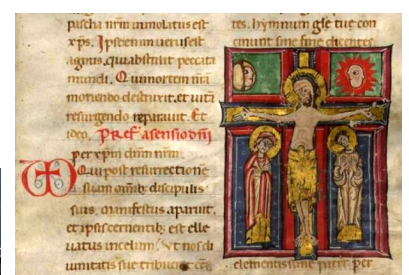 pascha nr̄m immolatus est
xp̄s. Ipse enim uerus est
agnus, qui abstulit peccata
mundi. Qui mortem nr̄a
moriendo destruxit, et uitā
resurgendo reparauit. Et
ideo. Pref asensio dn̄i
per xp̄m dn̄m nr̄m.
Qui post resurrectionē
suam omnib; discipulis
suis, manifestus aparuit,
et ipsis cernentib; est ele
uatus in celum. Vt nos di
uinitatis sue tribueret
tes. hymnum gl̄e tue con
cinunt sine fine dicentes.
clementissime pater per